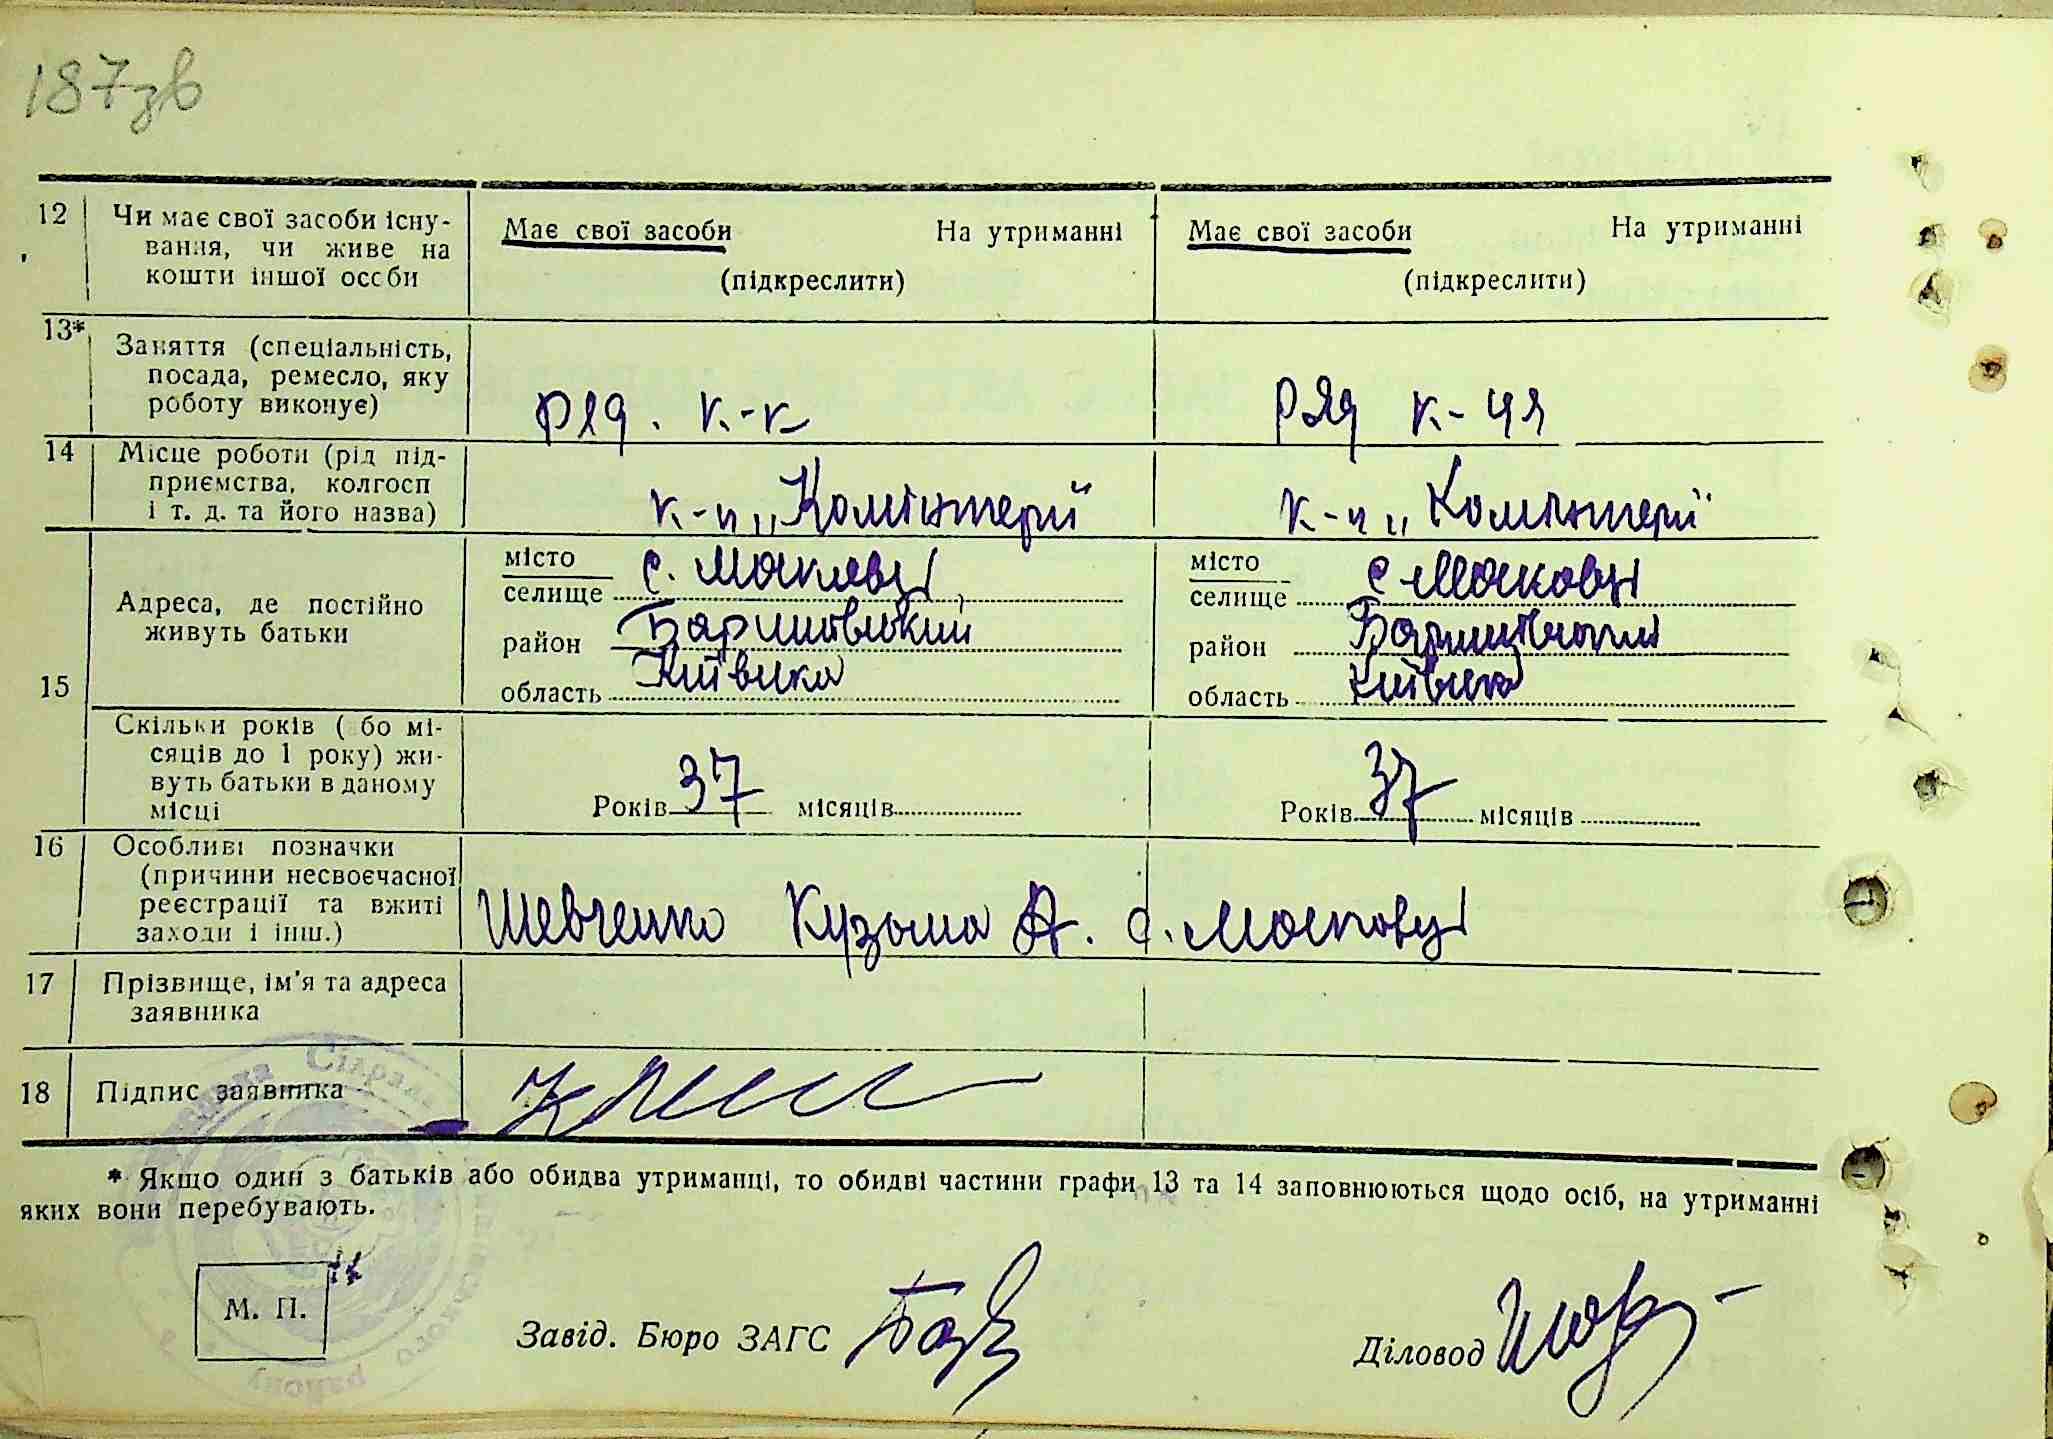 187зв
12 Чи має свої засоби існу-
вання, чи живе на
кошти іншої особи
Має свої засоби На утриманні
(підкреслити)
Має свої засоби На утриманні
(підкреслити)
13* Заняття (спеціальність,
посада, ремесло, яку
роботу виконує)
ряд. к-к
ряд к-ця
14 Місце роботи (рід під-
приємства, колгосп
і т. д. та його назва)
к-п „Комінтерн"
к-п „Комінтерн"
15
Адреса, де постійно
живуть батьки
місто
селище с. Москівці
район Баришівський
область Київська
місто
селище с Масковці
район Баришівський
область Київська
Скільки років ( бо мі-
сяців до 1 року) жи-
вуть батьки в даному
місці
Років 37 місяців
Років 37 місяців
16 Особливі позначки
(причини несвоєчасної
реєстрації та вжиті
заходи і інш.)
Шевченко Кузьма А. с. Масковці
17 Прізвище, ім'я та адреса
заявника
18 Підпис заявника
* Якщо один з батьків або обидва утриманці, то обидві частини графи 13 та 14 заповнюються щодо осіб, на утриманні
яких вони перебувають.
М. П.
Завід. Бюро ЗАГС
Діловод